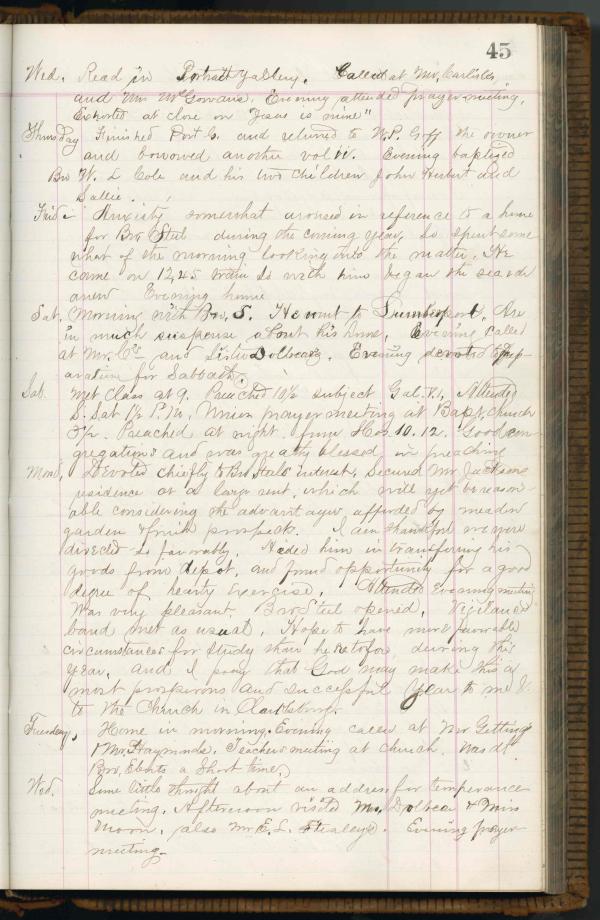 45
Wed. Read in Portrait Gallery. Called at Mr. Carlisles
and Mr McGowans. Evening attended prayer meeting,
Exhorted at close on "Jesus is mine"
Thursday Finished Port G. and returned to W.P. Goff the owner
and borrowed another vol. Evening baptized
Bro W. L Cole and his two children John Hubert and
Sallie.
Frid Anxiety somewhat aroused in reference to a home
for Bro Steel during the coming year, so spent some
what of the morning looking into the matter. He
came on 12,45 train so with him began the search
anew Evening home
Sat. Morning with Bro. S. He went to Lumberport. Am
in much suspense about his home, Evening called
at Mr. and Dolbears. Evening devoted to prep
aration for Sabbath.
Sab. Met Class at 9. Preached 10½ subject Gal. V.1, Attended
S. Sat 1½ P.M, Union prayer meeting at Bapt. church
Preached at night from Hos. 10.12. Good con
gregations and was greatly blessed in preaching
Mond. Devoted chiefly to Bro Steels interest, secured Mr Jacksons
residence at a large rent, which will yet be reason
able considering the advantages afforded by meadow
garden & fruit prospects. I am thankful we were
directed so favorably. Aided him in transfering his
goods from depot, and found opportunity for a good
degree of hearty exercise, Attended evening meeting
Was very pleasant. Bro Steel opened, Vigilance
band met as usual. Hope to have more favorable
circumstances for study than heretofore during this
year, and I pray that God may make this a
most prosperous and successful year to me &
to the Church in Clarksburg.
Tuesday, Home in morning. Evening called at Mr Gettings
& Mr. Haymonds. Teachers meeting at church. Was at
Bro. a short time,
Wed. Some little thought about an address for temperance
meeting. Afternoon visited Mr. Dolbear & Miss
Moon, also Mr. E. S. Stealeys. Evening prayer
meeting.